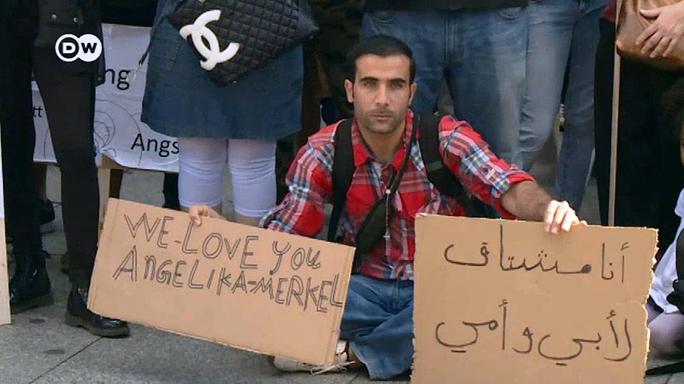 DW
Angs
WE-LOVE you
ANGELIKA-MERKEL
أنا مشتاق
لأبي وأمي